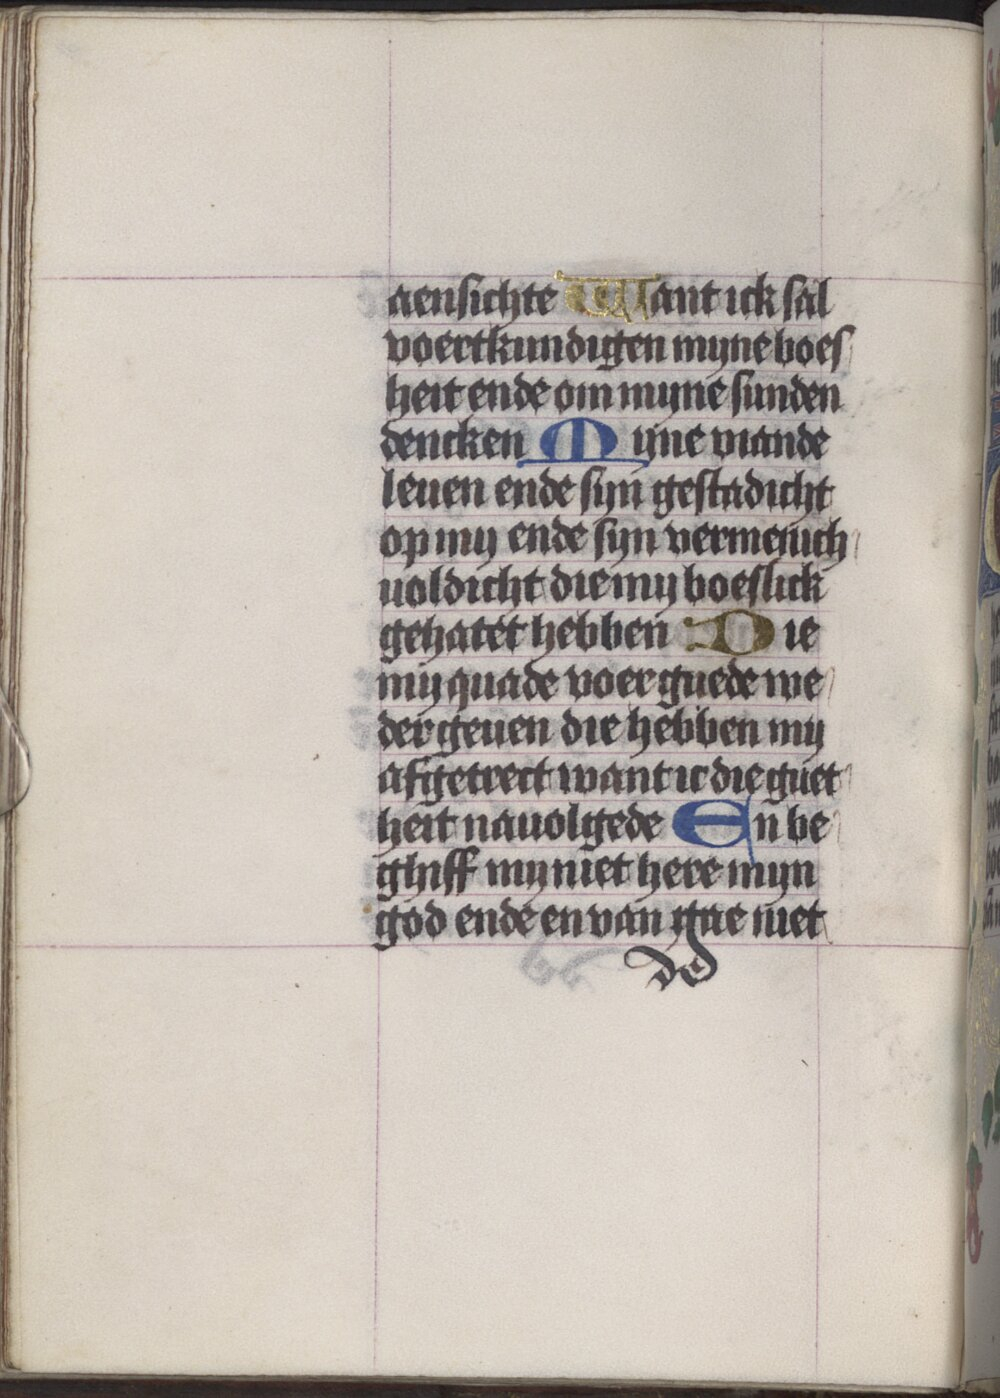 aensichte Want ick sal
voertkundigen myne boes
heit ende om myne sunden
dencken Myne viande
leuen ende syn gestadicht
op my ende syn vermenich
uoldicht die my boeslick
gehatet hebben Die
my quade voer guede we
der geuen die hebben my
afgetrect want ic die guet
heit nauolgede En̄ be
ghiff my niet here myn
god ende en van gae niet
de